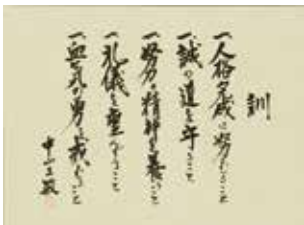 訓
一人格完成に努むること
一誠の道を守ること
一努力の精神を養うこと
一礼儀を重んずること
一血気の勇を戒むること
中山正敏